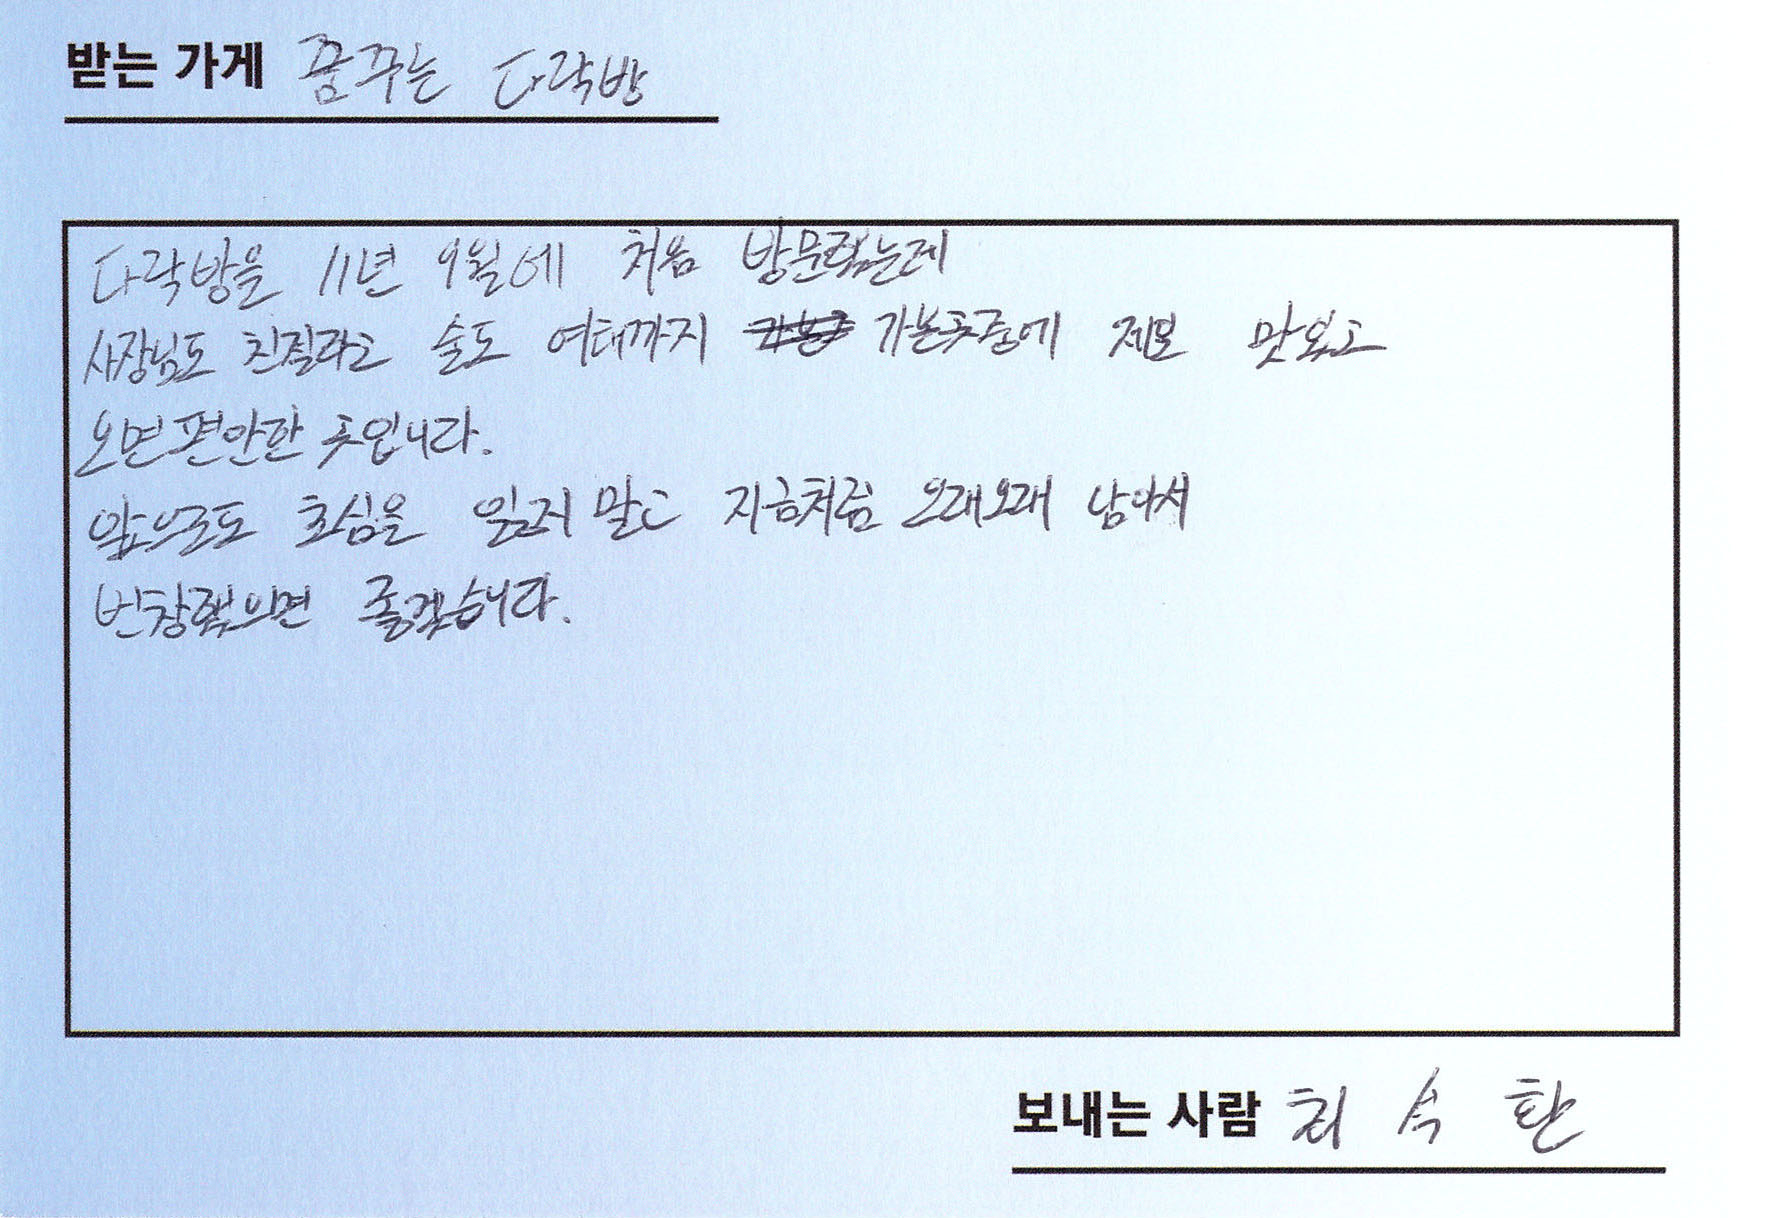 받는 가게 꿈꾸는 다락방
다락방을 11년 9월에 처음 방문했는데
사장님도 친절하고 술도 여태까지 가본곳중에 제일 맛있고
오면 편안한 곳입니다.
앞으로도 초심을 잃지 말고 지금처럼 오래오래 남아서
번창했으면 좋겠습니다.
보내는 사람 최수환